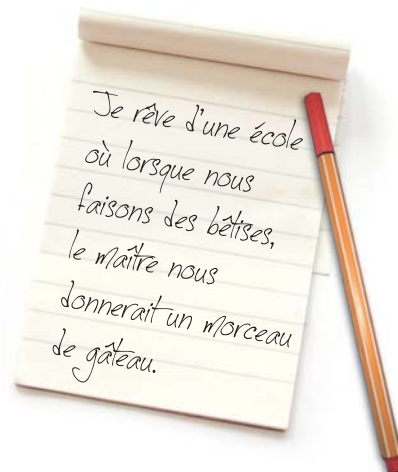 Je rêve d'une école
où lorsque nous
faisons des bêtises,
le maître nous
donnerait un morceau
de gâteau.